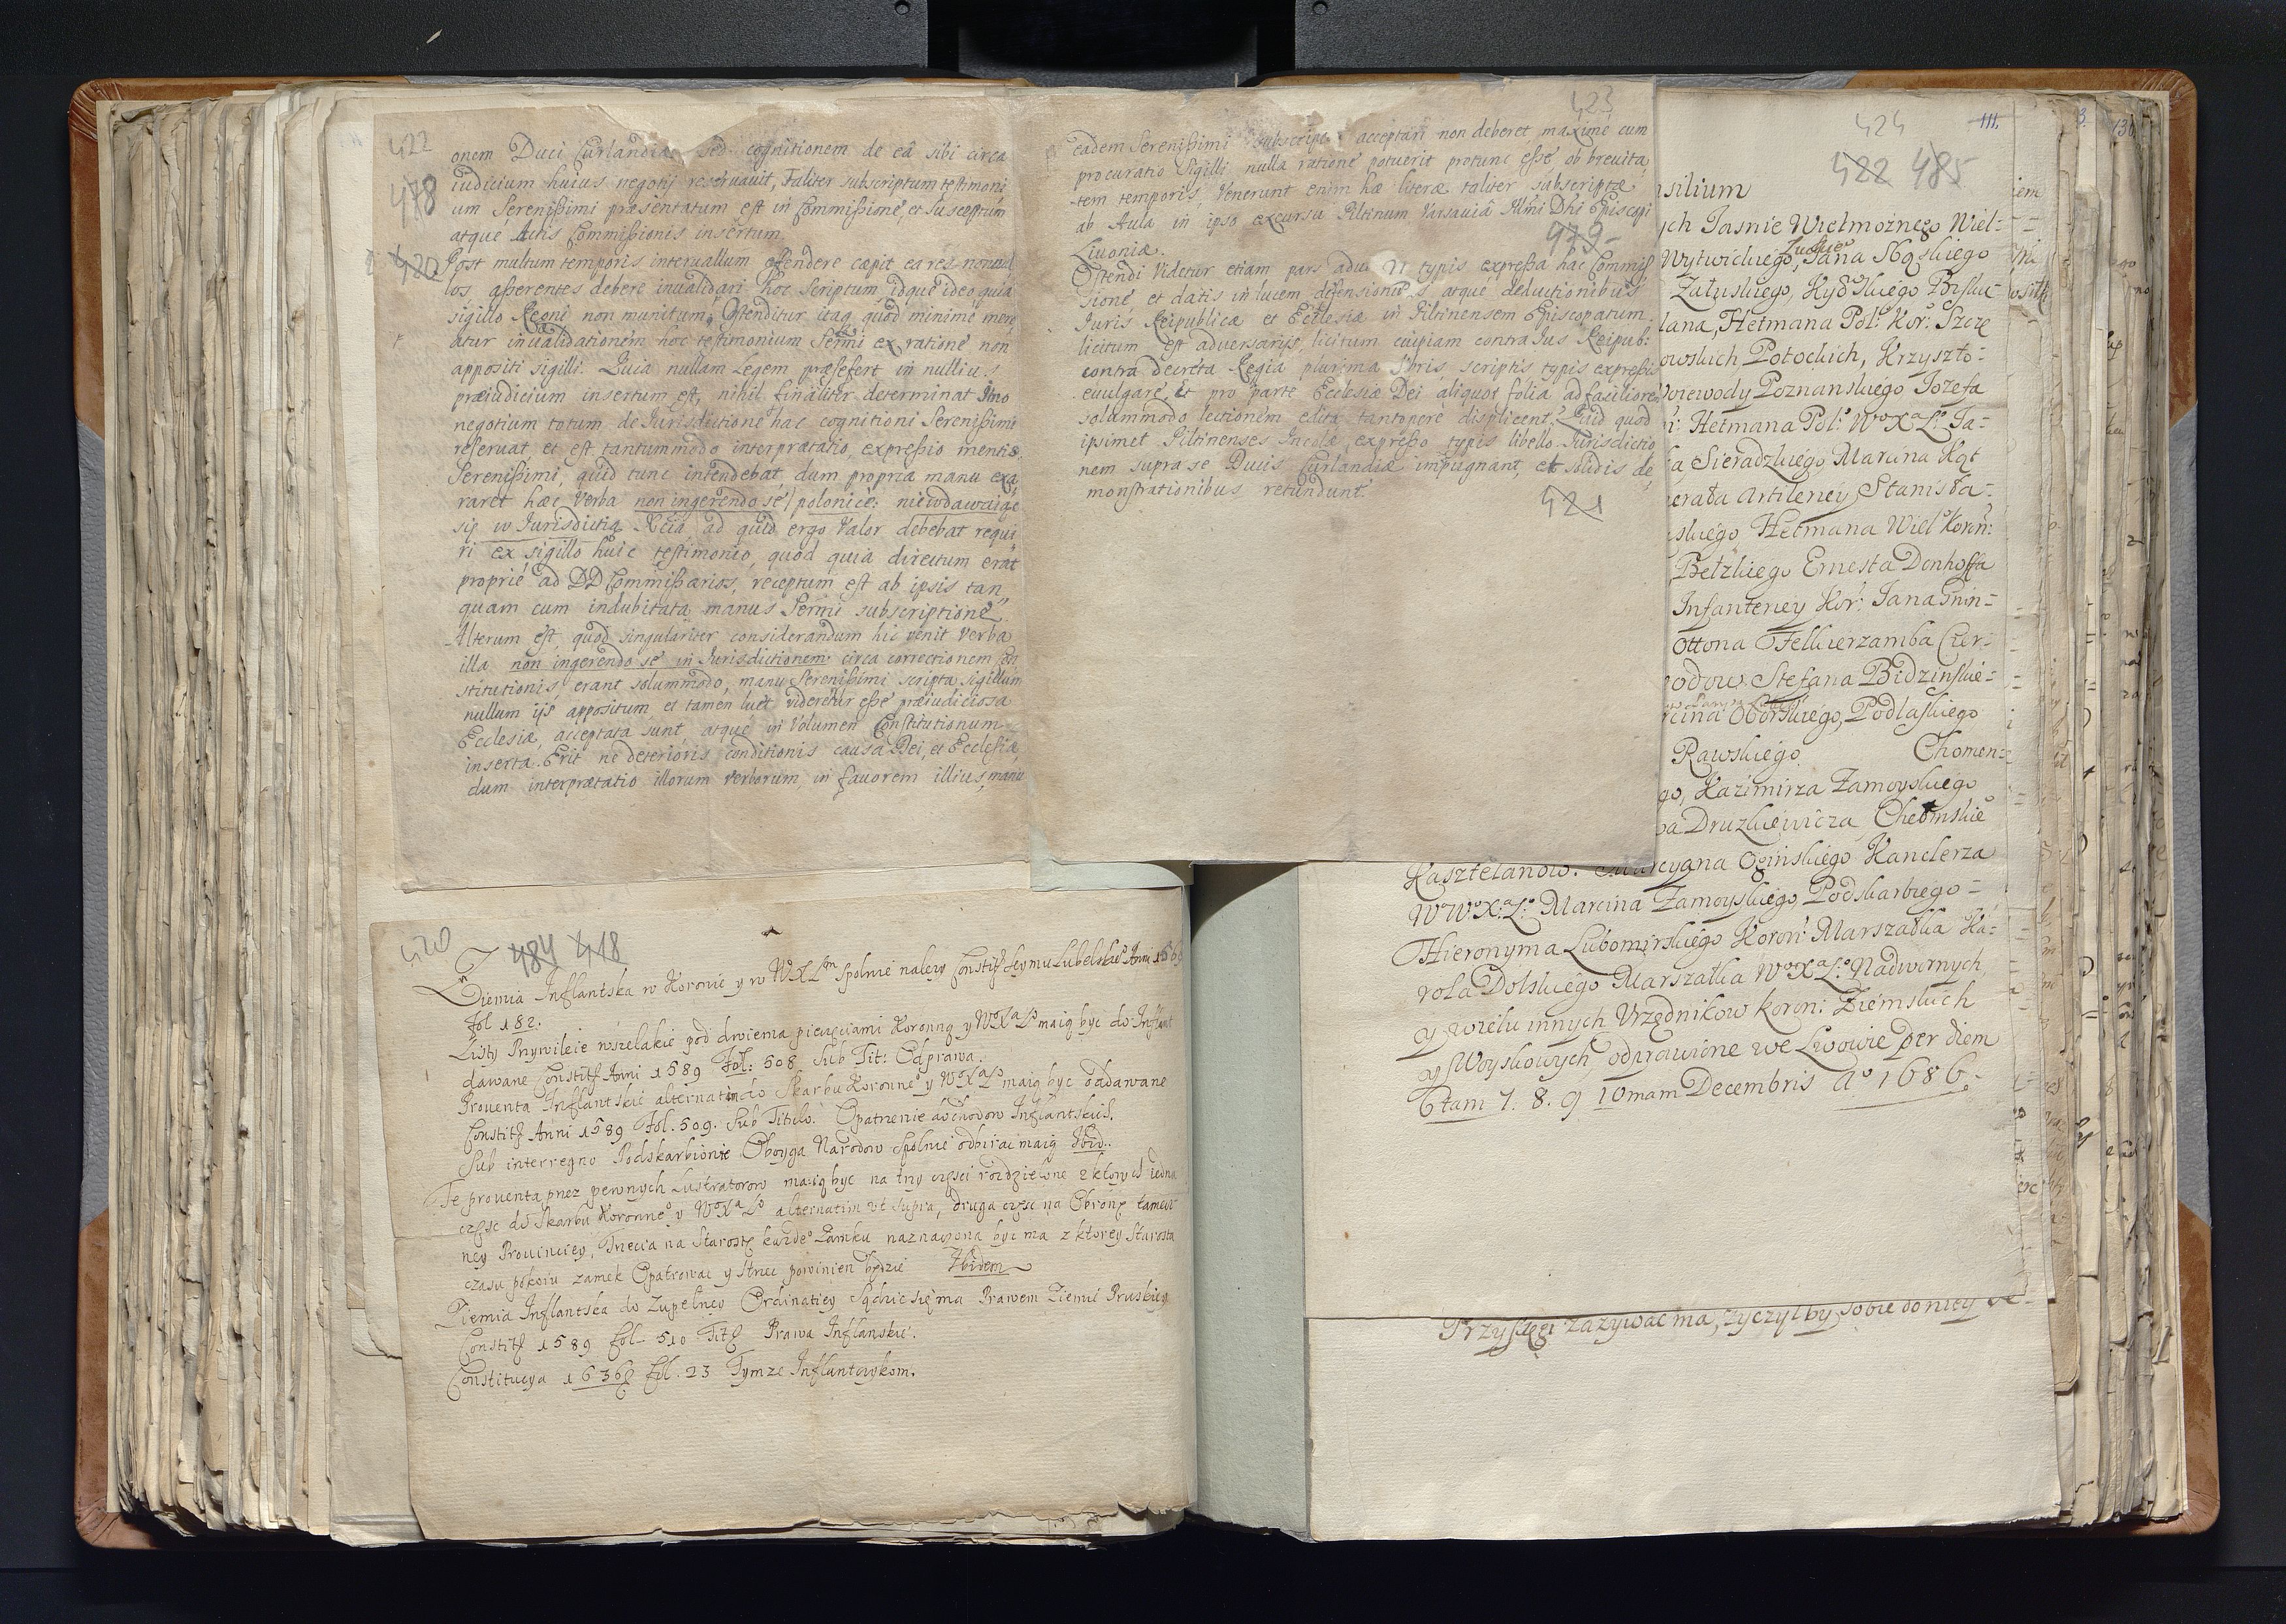 422
478
420
onem Duci Curlandiæ sed cognitionem de eâ sibi circa
iudicium huius negotij reseruauit, Taliter subscriptum testimoni
um Serenißimi præsentatum est in Commißione, et Susceptum
atque Actis Commißionis insertum.
Post multum temporis interuallum offendere cæpit ea res nonnul
los aßerentes debere inualidari hoc scriptum, idque ideo quia
sigillo Regni non munitum. Ostenditur itaq quod minime mere
atur inualidationem hoc testimonium Sermi ex ratione non
appositi sigilli. Quia nullam Legem præsefert in nullius
præiudicium insertum est, nihil finaliter determinat Imo
negotium totum de Iurisdictione hac cognitioni Serenißimi
reseruat et est tantummodo interprætatio, expreßio mentis
Serenißimi, quid tunc intendebat, dum propria manu exa
raret hæc Verba non ingerendo se / polonice: niewdawaiąc
się w Iurisdictią Xcia, ad quid ergo Valor debebat requi
ri ex sigillo huic testimonio, quod quia directum erat
proprie ad DD Commißarios, receptum est ab ipsis tan
quam cum indubitata manus Sermi subscriptione.
Alterum est, quod singulariter considerandum hic venit Verba
illa non ingerendo se in Iurisdictionem circa correctionem Con
stitutionis, erant solummodo, manu Serenißimi scripta sigillum
nullum ijs appositum et tamen licet videretur eße præiudiciosa
Ecclesiæ, acceptata sunt, atque in Volumen Constitutionum
inserta. Erit ne deterioris conditionis causa Dei, et Ecclesiæ,
dum interprætatio illorum verborum, in fauorem illius, manu
423
eadem Serenißimi subscripta acceptari non deberet, maxime cum
procuratio Sigilli, nulla ratione potuerit protunc eße ob breuita
tem temporis, Venerunt enim hæ literæ taliter subscriptæ
ab Aula in ipso excursu Piltinum Varsauiâ Illmi Dni Episcopi
Liuoniæ.
479
Ostendi Videtur etiam pars typis expreßa hac Commis
sione et datis in lucem defensionibus, atque deductionibus
Iuris Reipublicæ et Ecclesiæ in Piltinensem Episcopatum.
licitum est aduersarijs, licitum cuipiam contra Ius Reipub:
contra decreta Regia plurima libris, scriptis typis expreßis
euulgare, Et pro parte Ecclesiæ Dei aliquot folia ad faciliorem
solummodo lectionem edita tantopere displicent? Quid quod
ipsimet Piltinenses Incolæ, expreßo typis libello Iurisdictio
nem supra se Ducis Curlandiæ impugnant, et solidis de
monstrationibus retundunt.
421
420
484 418
Ziemia Inflantska w Koronie y w WXLm spolnie należy Constit Seymu Lubelskie Anni 1569
fol 182.
Listy Przywileie wszelakie pod dwiema pieczęciami Koronną y WoXaLo maią byc do Inflant
dawane Constit Anni 1589 Fol: 508 Sub Tit: Odprawa.
Prouenta Inflantskie alternatim do Skarbu Koronneo y WoXaLo maią byc oddawane
Constit Anni 1589 Fol. 509. Sub Titulo. Opatrzenie dochodow Inflantskich.
Sub interregno Podskarbiowie Oboyga Narodow spolnie odbirac maią Ibid.
Te prouenta przez pewnych Lustratorow maią byc na trzy częsci rozdzielone z ktorych iedna
częsc do Skarbu Koronneo y WoXaLo alternatim vt supra, druga częsc na Obronę tamecz
ney Prouinciey, Trzecia na Starostę kazdeo Zamku naznaczona byc ma z ktorey Starosta
czasu pokoiu zamek Opatrowac y strzec powinien będzie Ibidem
Ziemia Inflantska do Zupelney Ordinatiey Sądzic się ma Prawem Ziemie Pruskiey
Constit 1589 fol 510 Tit Prawa Inflanskie.
Constitucya 1636 fol. 23 Tymze Inflantczykom.
424 111.
422 485
silium
ych Jasnie Wielmoznego Wiel-
Wytwickiego, Jana Stą skiego
Załuskiego, Kyowskiego Bisku-
lana, Hetmana Pol: Kor: Szczę
owskich Potockich, Krzyszto-
Woiewody Poznanskiego Jozefa
Hetmana Pol: WoXaLo Ja-
Sieradzkiego Marcina Kąt
erała Artilleriey Stanisła-
skiego Hetmana Wiel Koron:
Bełzkiego Ernesta Donhoffa
Infanteriey Kor: Jana Gnin-
Ottona Felkierzamba Czer-
odow Stefana Bidzinskie-
rcina Oborskiego, Podlaskiego
Rawskiego Chomen-
go, Kazimirza Zamoyskiego
Druzkiewicza Chełmskie
Kasztelanow. Marcyana Oginskiego Kanclerza
WWoXaLo Marcina Zamoyskiego Podskarbiego-
Hieronyma Lubomirskiego Koron: Marszałka Ka-
rola Dolskiego Marszałka WoXaLo Nadwornych
y wielu innych Vrzędnikow Koron: Ziemskich
y Woyskowych, odprawione we Lwowie per diem
8tam 7. 8. 9 10mam Decembris Ao 1686.
Przysięgi zazywac ma, zyczył by sobie do niey